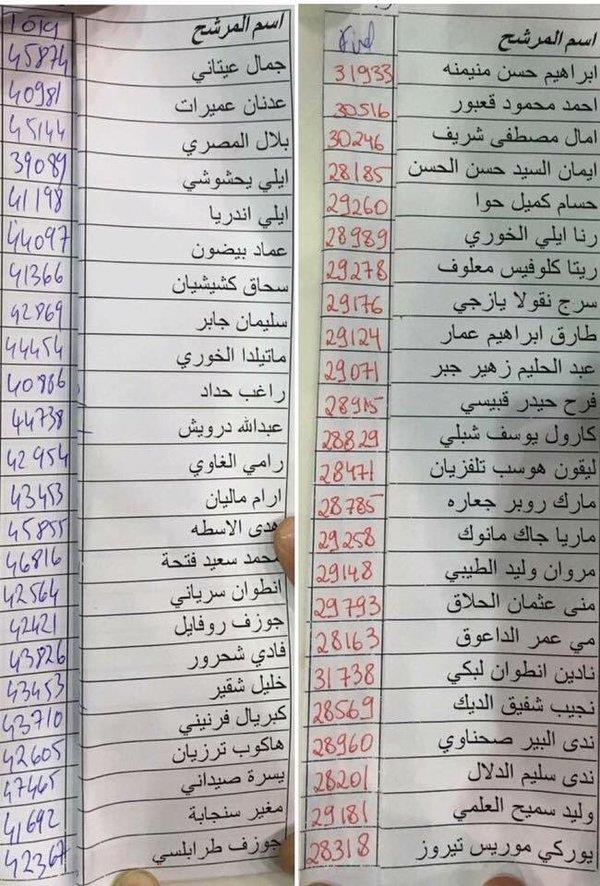 اسم المرشح Final
ابراهيم حسن منيمنه 31933
احمد محمود قعبور 30516
امال مصطفى شريف 30246
ايمان السيد حسن الحسن 28185
حسام كميل حوا 29260
رنا ايلي الخوري 28989
ريتا كلوفيس معلوف 29278
سرج نقولا يازجي 29176
طارق ابراهيم عمار 29124
عبد الحليم زهير جبر 29071
فرح حيدر قبيسي 28915
كارول يوسف شبلي 28829
ليقون هوسب تلفزيان 28471
مارك روبر جعاره 28785
ماريا جاك مانوك 29258
مروان وليد الطيبي 29148
منى عثمان الحلاق 29793
مي عمر الداعوق 28163
نادين انطوان لبكي 31738
نجيب شفيق الديك 28569
ندى البير صحناوي 28960
ندى سليم الدلال 28201
وليد سميح العلمي 29181
يوركي موريس تيروز 28318
اسم المرشح
جمال عيتاني 45874
عدنان عميرات 40981
بلال المصري 45144
ايلي يحشوشي 39089
ايلي اندريا 41198
عماد بيضون 44097
سحاق كشيشيان 41366
سليمان جابر 42869
ماتيلدا الخوري 44454
راغب حداد 40866
عبدالله درويش 44738
رامي الغاوي 42954
ارام ماليان 43453
هدى الاسطه 45855
محمد سعيد فتحة 46816
انطوان سرياني 42564
جوزف روفايل 42421
فادي شحرور 43826
خليل شقير 43453
كبريال فرنيني 43710
هاكوب ترزيان 42605
يسرة صيداني 47465
مغير سنجابة 41692
جوزف طرابلسي 42367